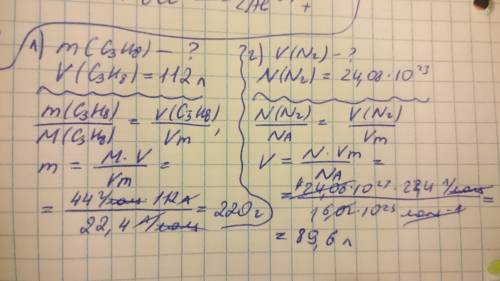 1) m(C₃H₈) - ?
V(C₃H₈) = 112 л
m(C₃H₈)/M(C₃H₈) = V(C₃H₈)/Vm,
m = M·V/Vm =
= 44 г/моль · 112 л / 22,4 л/моль = 220 г
2) V(N₂) - ?
N(N₂) = 24,08·10²³
N(N₂)/NA = V(N₂)/Vm
V = N·Vm/NA =
= 24,08·10²³ · 22,4 л/моль / 6,02·10²³ моль⁻¹ =
= 89,6 л